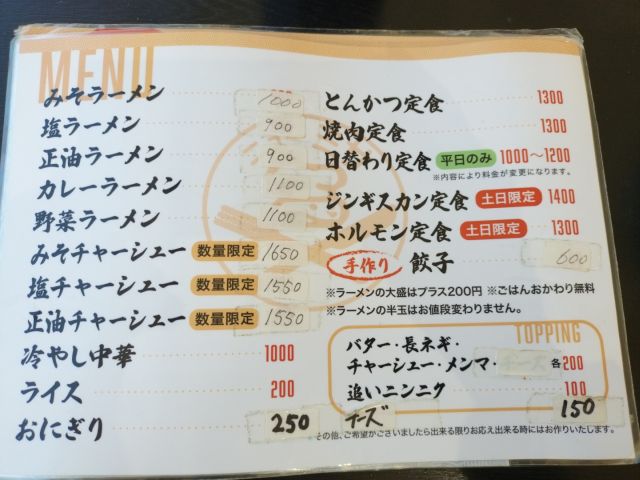 MENU
みそラーメン 1000
塩ラーメン 900
正油ラーメン 900
カレーラーメン 1100
野菜ラーメン 1100
みそチャーシュー 数量限定 1650
塩チャーシュー 数量限定 1550
正油チャーシュー 数量限定 1550
冷やし中華 1000
ライス 200
おにぎり 250
とんかつ定食 1300
焼肉定食 1300
日替わり定食 平日のみ 1000〜1200
※内容により料金が変更になります。
ジンギスカン定食 土日限定 1400
ホルモン定食 土日限定 1300
手作り 餃子 600
※ラーメンの大盛はプラス200円 ※ごはんおかわり無料
※ラーメンの半玉はお値段変わりません。
TOPPING
バター・長ネギ・
チャーシュー・メンマ・チーズ 各200
追いニンニク 100
チーズ 150
その他、ご希望がございましたら出来る限りお応え出来る時にはお作りいたします。